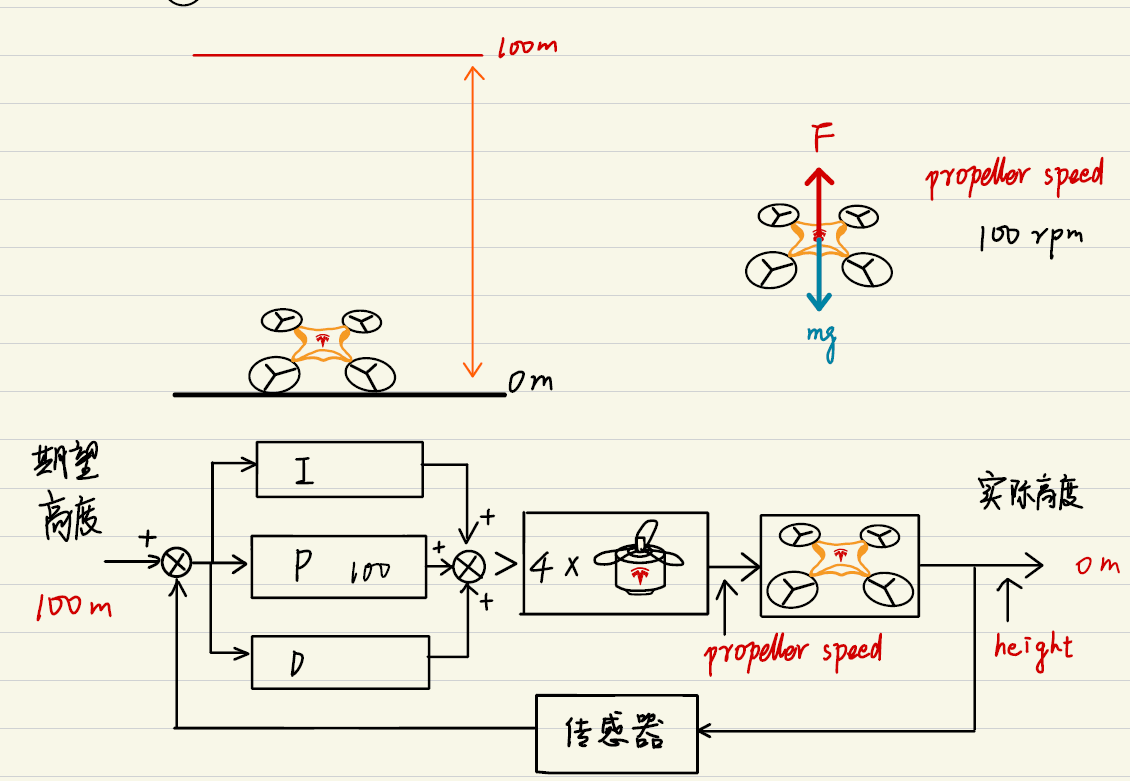 100m
F
propeller speed
100 rpm
mg
0m
期望
高度
100m
+
I
P 100
D
+
+
+
4 x
propeller speed
实际高度
0m
height
传感器